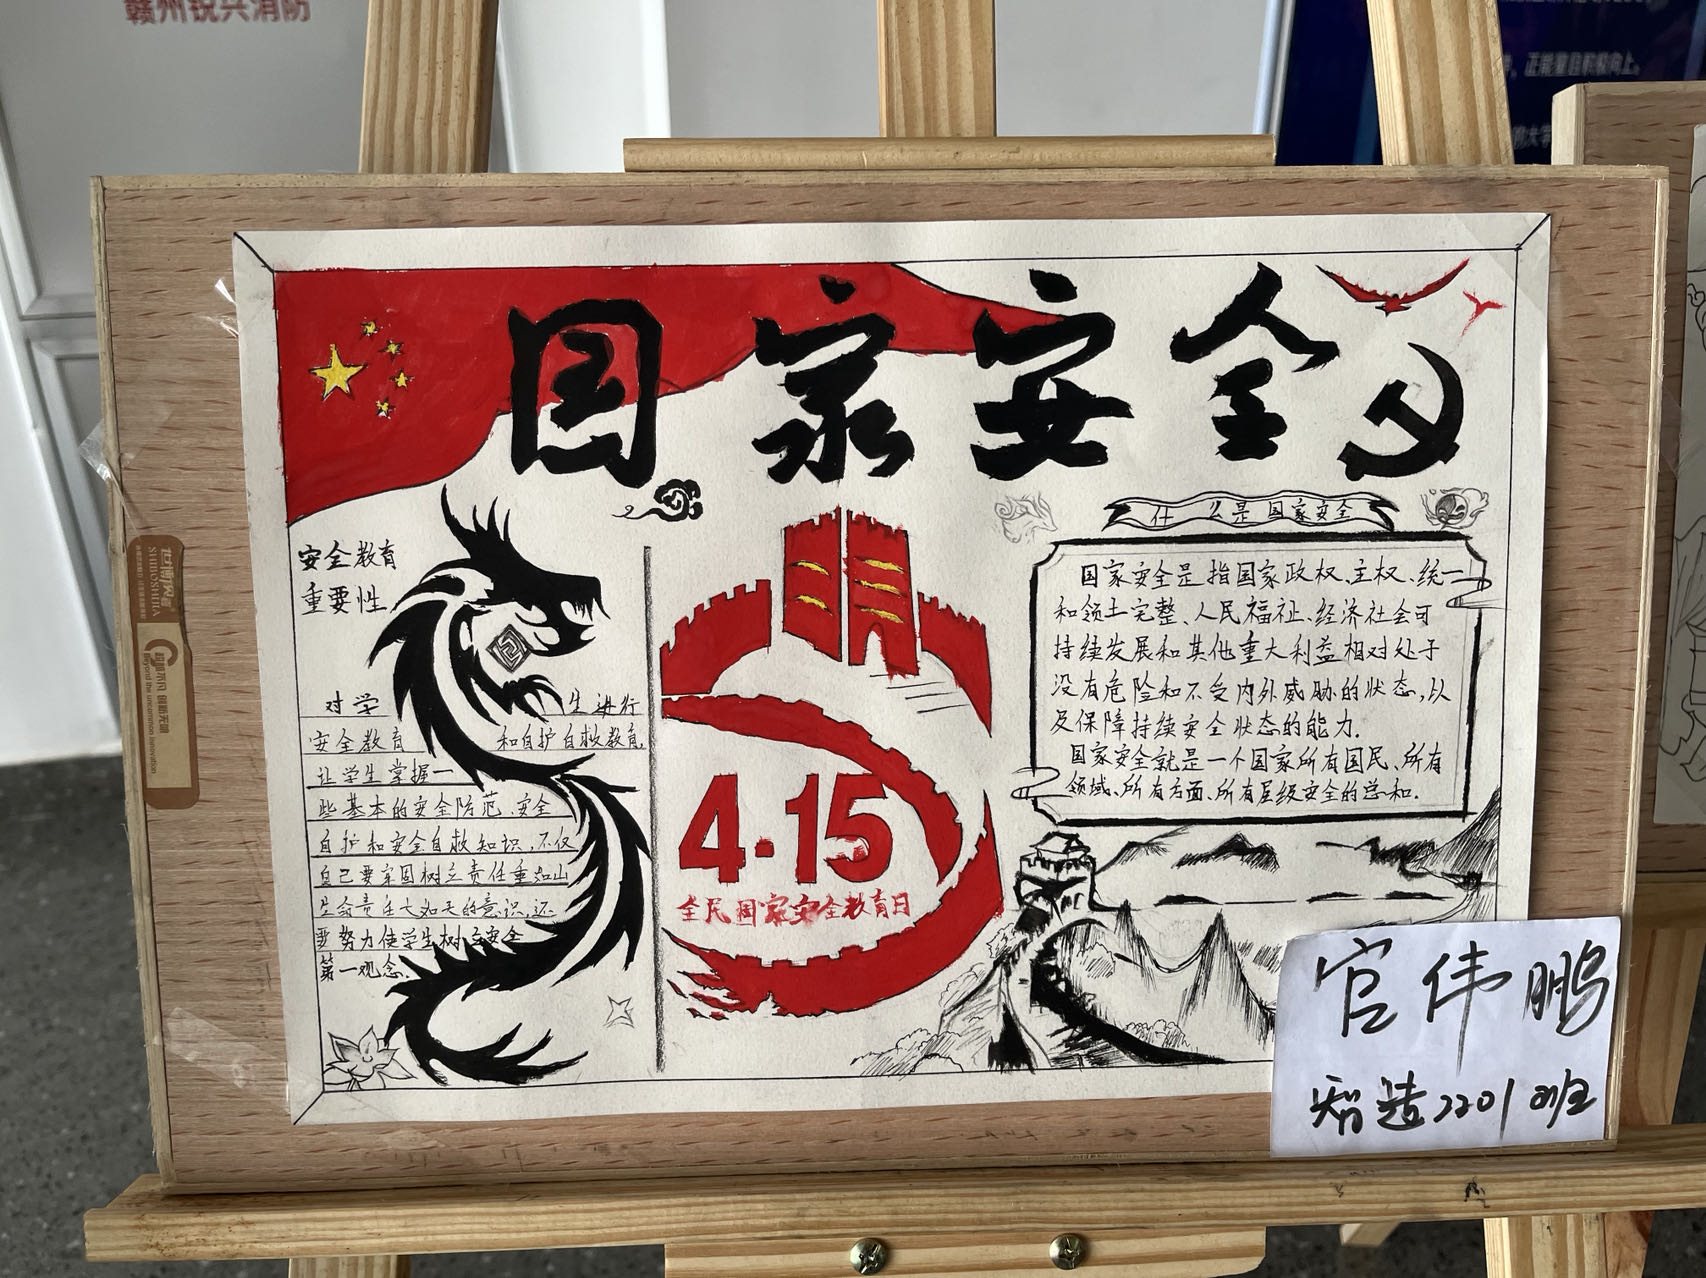 赣州锐兴消防
正能量自积极向上。
国家安全
什么是国家安全
安全教育
重要性
对学生进行
安全教育和自护自救教育,
让学生掌握一
些基本的安全防范、安全
自护和安全自救知识,不仅
自己要牢固树立责任重如山
生命责任大如天的意识,还
要努力使学生树立安全
第一观念.
4·15
全民国家安全教育日
国家安全是指国家政权、主权、统一
和领土完整、人民福祉、经济社会可
持续发展和其他重大利益相对处于
没有危险和不受内外威胁的状态,以
及保障持续安全状态的能力.
国家安全就是一个国家所有国民、所有
领域、所有方面、所有层级安全的总和.
世博仕嘉
SHIBOSHIJIA
Beyond the uncommon innovation
官伟鹏
智造2201班